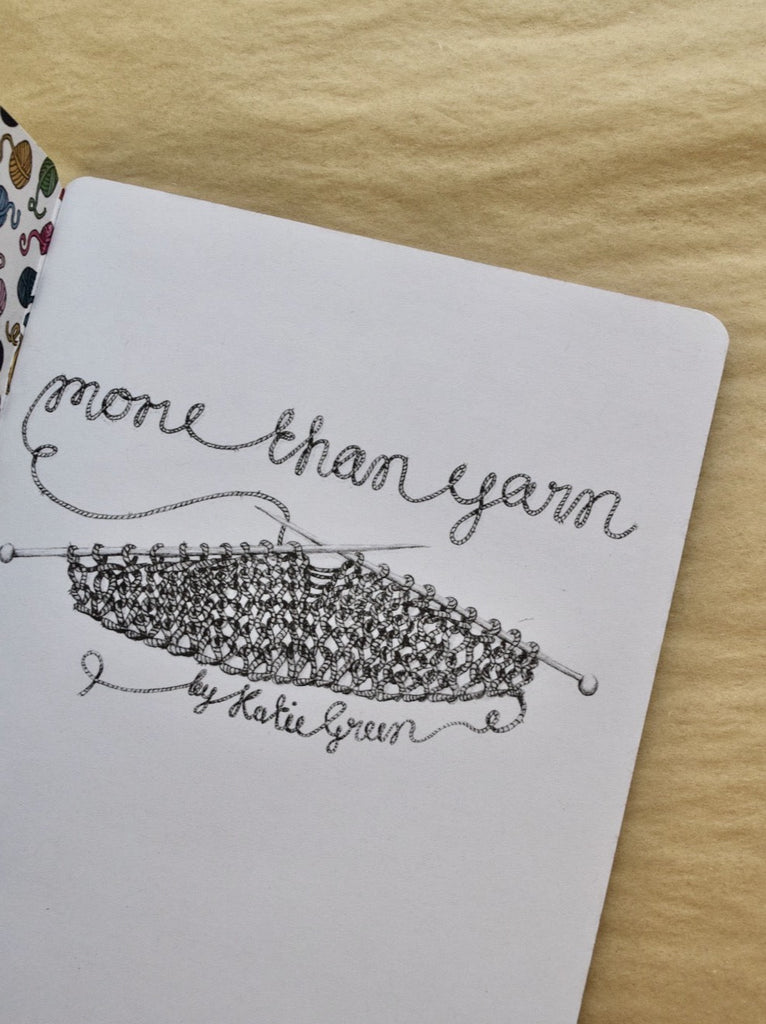 more than yarn
by Katie Green